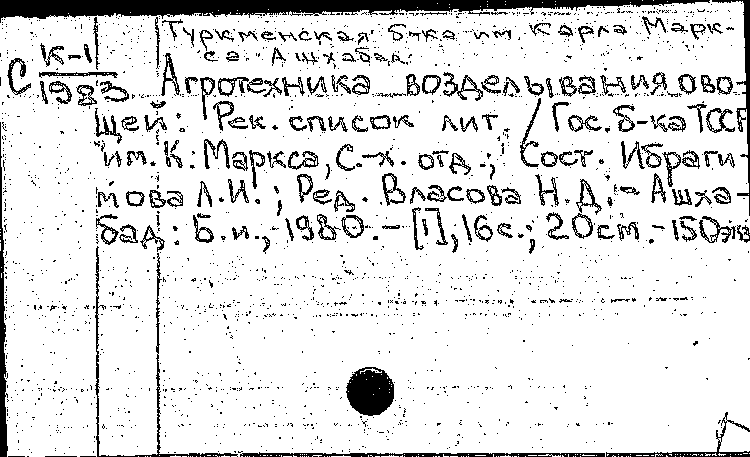 Туркменская б-ка им. Карла Марк-
са. Ашхабад.
С К-1
1983
Агротехника возделывания ово-
щей: Рек. список лит. / Гос. б-ка ТССР
им. К. Маркса, С.-х. отд.; Сост. Ибраги-
мова Л.И.; Ред. Власова Н.Д. - Ашха-
бад: Б.и., 1980. - [1], 16 с.; 20 см. - 150 экз